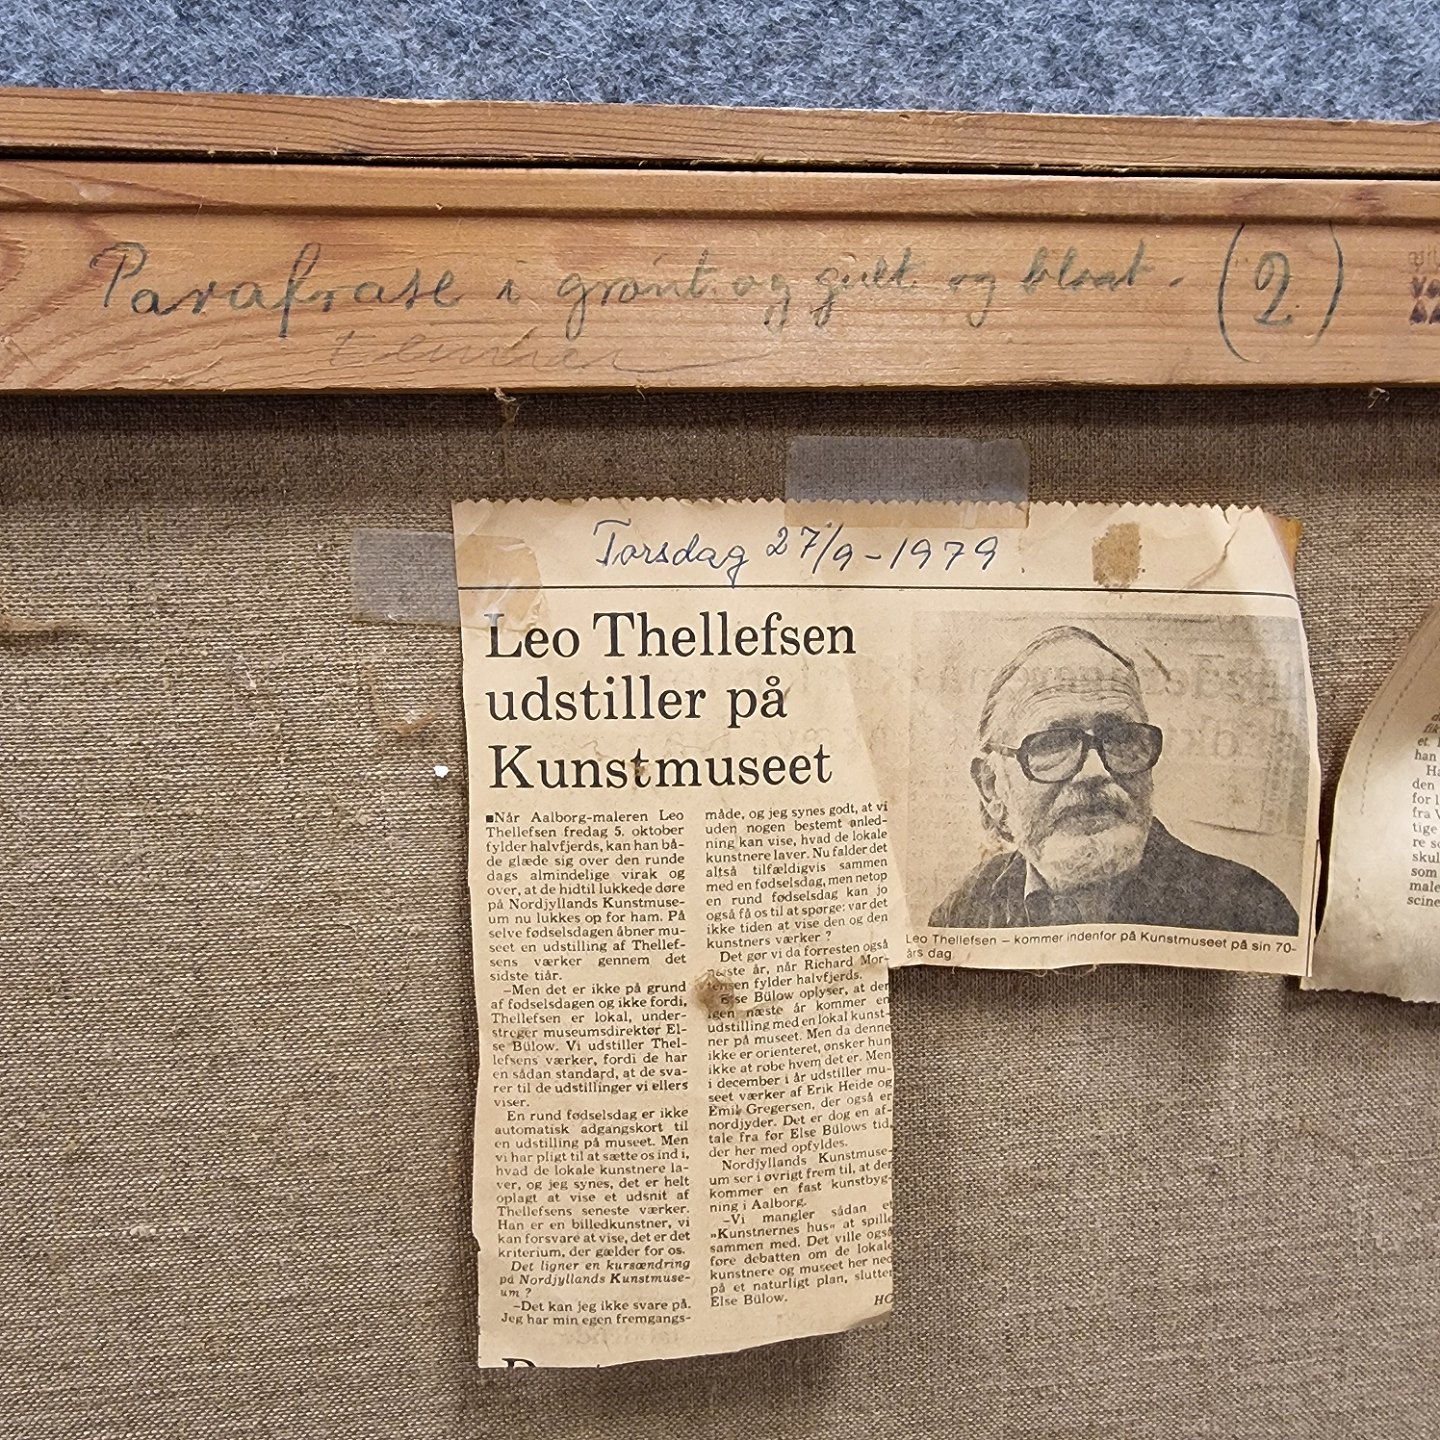 Parafrase i grønt og gult og blaat. (2)
Torsdag 27/9-1979.
Leo Thellefsen
udstiller på
Kunstmuseet
■Når Aalborg-maleren Leo
Thellefsen fredag 5. oktober
fylder halvfjerds, kan han bå-
de glæde sig over den runde
dags almindelige virak og
over, at de hidtil lukkede døre
på Nordjyllands Kunstmuse-
um nu lukkes op for ham. På
selve fødselsdagen åbner mu-
seet en udstilling af Thellef-
sens værker gennem det
sidste tiår.
–Men det er ikke på grund
af fødselsdagen og ikke fordi,
Thellefsen er lokal, under-
streger museumsdirektør El-
se Bülow. Vi udstiller Thel-
lefsens værker, fordi de har
en sådan standard, at de sva-
rer til de udstillinger vi ellers
viser.
En rund fødselsdag er ikke
automatisk adgangskort til
en udstilling på museet. Men
vi har pligt til at sætte os ind i,
hvad de lokale kunstnere la-
ver, og jeg synes, det er helt
oplagt at vise et udsnit af
Thellefsens seneste værker.
Han er en billedkunstner, vi
kan forsvare at vise, det er det
kriterium, der gælder for os.
Det ligner en kursændring
på Nordjyllands Kunstmuse-
um ?
–Det kan jeg ikke svare på.
Jeg har min egen fremgangs-
måde, og jeg synes godt, at vi
uden nogen bestemt anled-
ning kan vise, hvad de lokale
kunstnere laver. Nu falder det
altså tilfældigvis sammen
med en fødselsdag, men netop
en rund fødselsdag kan jo
også få os til at spørge: var det
ikke tiden at vise den og den
kunstners værker ?
Det gør vi da forresten også
næste år, når Richard Mor-
tensen fylder halvfjerds.
Else Bülow oplyser, at der
igen næste år kommer en
udstilling med en lokal kunst-
ner på museet. Men da denne
ikke er orienteret, ønsker hun
ikke at røbe hvem det er. Men
i december i år udstiller mu-
seet værker af Erik Heide og
Emil Gregersen, der også er
nordjyder. Det er dog en af-
tale fra før Else Bülows tid,
der her med opfyldes.
Nordjyllands Kunstmuse-
um ser i øvrigt frem til, at der
kommer en fast kunstbyg-
ning i Aalborg.
–Vi mangler sådan et
»Kunstnernes hus« at spille
sammen med. Det ville også
føre debatten om de lokale
kunstnere og museet her ned
på et naturligt plan, slutter
Else Bülow.
HC
Leo Thellefsen – kommer indenfor på Kunstmuseet på sin 70-
års dag.
et.
han
den
for
fra
tige
skul
som
male